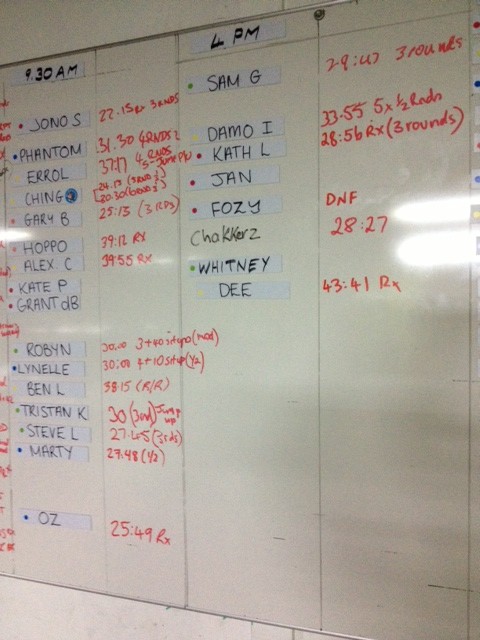 9.30 AM
JONO S 22.15 Rx 3RNDS
PHANTOM 31.30 4RNDS
ERROL 37.17 4 RNDS
CHING
GARY B 25:13 (3 RDS)
HOPPO 39:12 RX
ALEX. C 39:55 RX
KATE P
GRANT dB
ROBYN 30:00 3+40 situps (mod)
LYNELLE 30:00 4+10 situp (1/2)
BEN L 38:15 (R/R)
TRISTAN K 30 (3rd) Jump up
STEVE L 27.45 (3rds)
MARTY 27.48 (1/2)
OZ 25:49 Rx
4 PM
SAM G 3 rounds
DAMO I 33:55 5x 1/2 Rnds
KATH L 28:56 Rx (3 rounds)
JAN
FOZY DNF
Chakkerz 28:27
WHITNEY
DEE 43:41 Rx